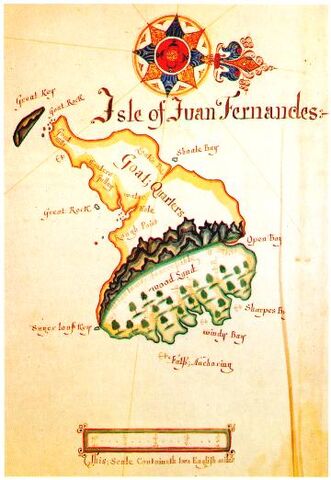 Isle of Juan Fernandes:
Great Key
Goat Rock
Shoale Bay
Goat; Quarters
Great Rock
Hole
Rough Point
Open Bay
wood Land
Sharpes B
windy Bay
Suger loaf Key
Fals; Anchoring
This; Scale Containeth two English miles